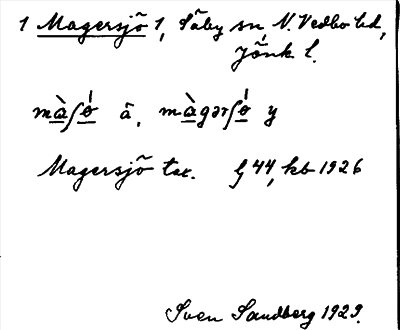 1 Magersjö 1, Säby sn, N. Vedbo hd,
Jönk l.
màʃǿ ä, màgərʃǿ y
Magersjö tax. J 44, kb 1926
Sven Sandberg 1929.